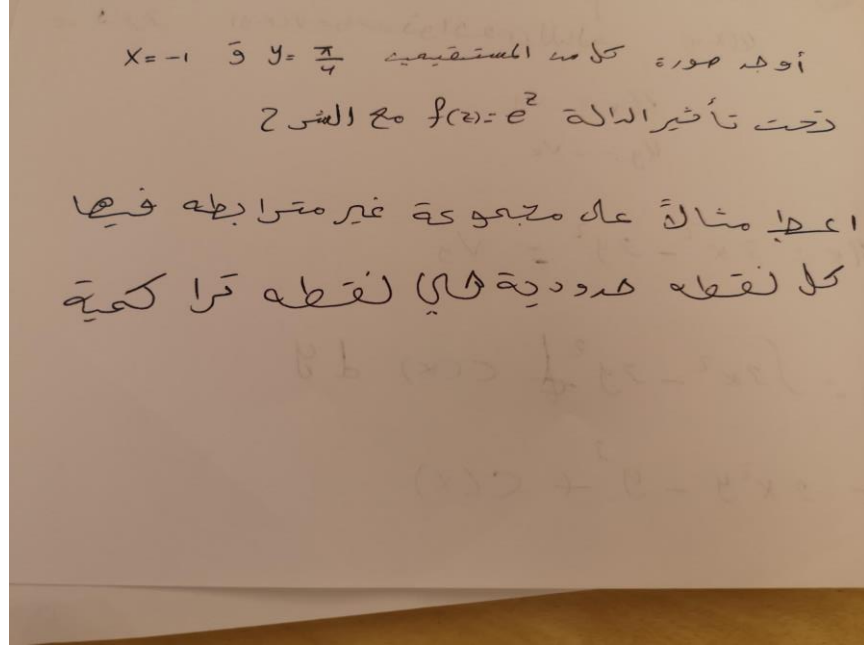 أوجد صورة كل من المستقيمين y = π/4 و x = -1
تحت تأثير الدالة f(z) = e^z مع الشرح
اعط مثالاً على مجموعة غير مترابطه فيها
كل نقطه حدودية هي نقطه تراكمية